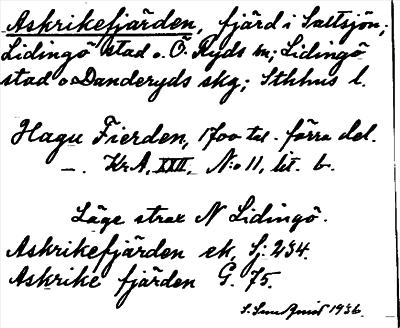 Askrikefjärden, fjärd i Saltsjön;
Lidingö stad o. Ö. Ryds sn; Lidingö
stad o Danderyds skg; Sthlms l.
Hagu Fierden, 1700 tal. förra del.
—. Kr.A, XXII, N:o 11, lit. b.
Läge strax N Lidingö.
Askrikefjärden ek, Sj: 234.
Askrike fjärden G. 75.
1936